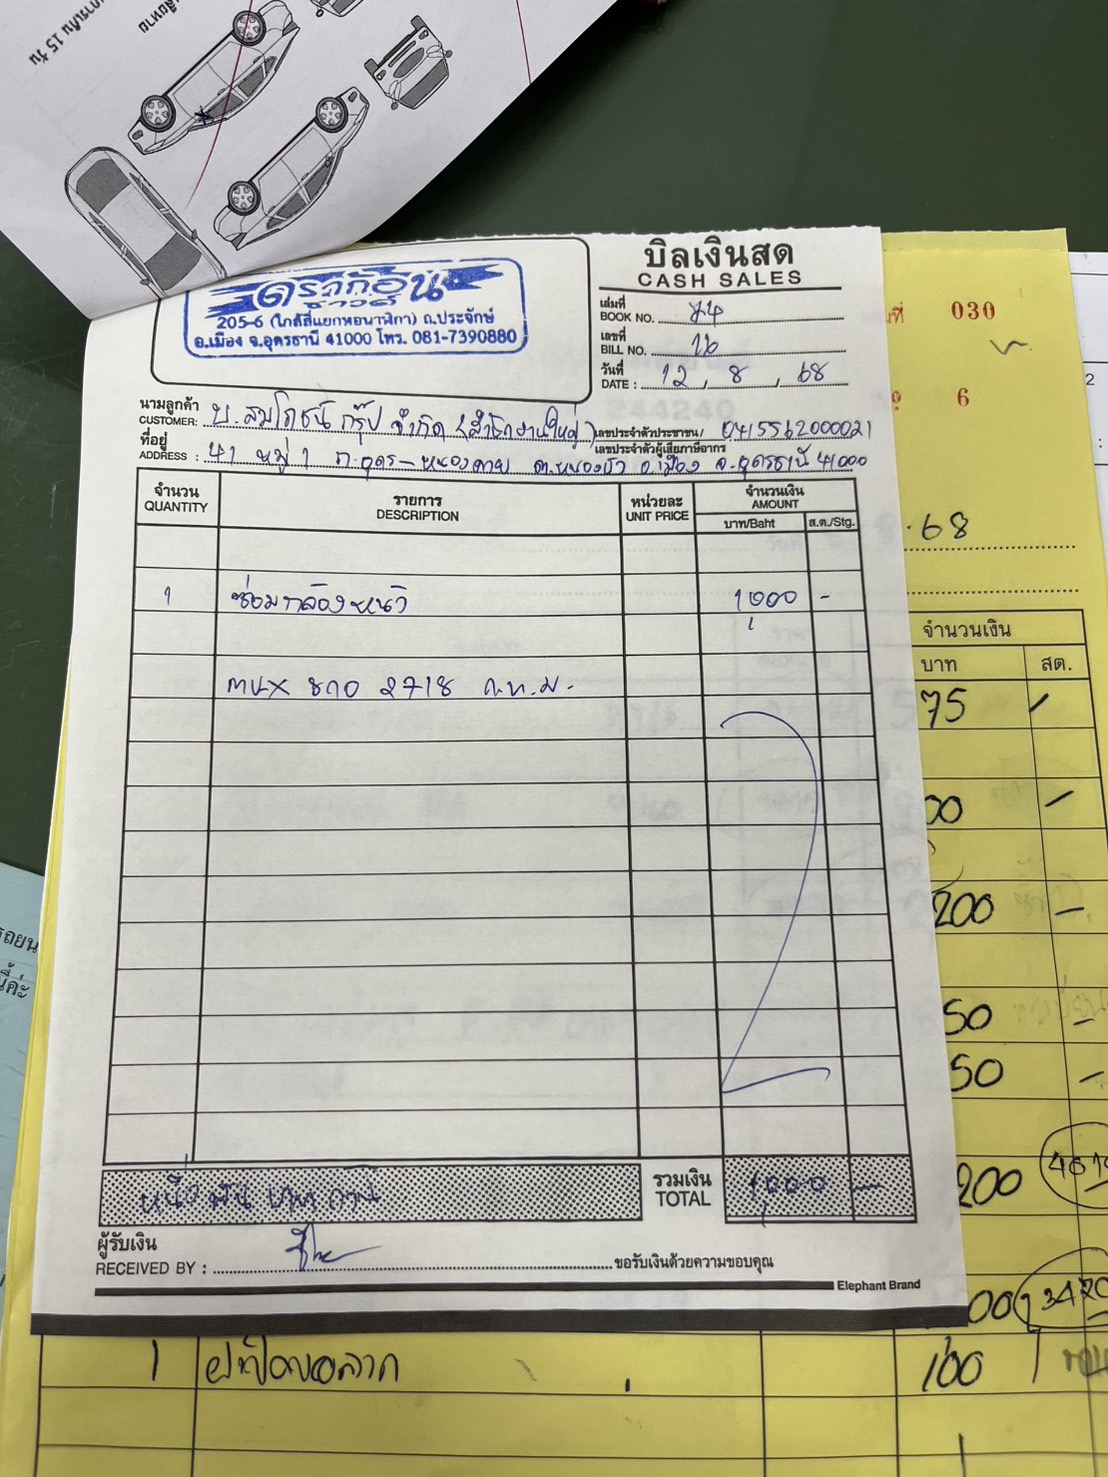 การเกิน 15 วัน
ดราก้อน
ซาวด์
205-6 (ใกล้สี่แยกหอนาฬิกา) ถ.ประจักษ์
อ.เมือง จ.อุดรธานี 41000 โทร. 081-7390880
บิลเงินสด
CASH SALES
เล่มที่
BOOK NO. 74
เลขที่
BILL NO. 16
วันที่
DATE : 12 , 8 , 68
นามลูกค้า
CUSTOMER: บ.สมโภชน์ กรุ๊ป จำกัด (สำนักงานใหญ่)
เลขประจำตัวประชาชน/ 0415562000021
เลขประจำตัวผู้เสียภาษีอากร
ที่อยู่
ADDRESS : 41 หมู่ 1 ถ.อุดร-หนองคาย ต.หนองบัว อ.เมือง จ.อุดรธานี 41000
จำนวน รายการ หน่วยละ จำนวนเงิน
QUANTITY DESCRIPTION UNIT PRICE AMOUNT
บาท/Baht ส.ต./Stg.
1 ซ่อมกล้องหน้า 1,000 -
mu-x 8กอ 2718 ก.ท.ม.
หนึ่งพันบาทถ้วน
รวมเงิน 1,000 -
TOTAL
ผู้รับเงิน
RECEIVED BY : ขอรับเงินด้วยความขอบคุณ
Elephant Brand
ที่ 030
6
68
จำนวนเงิน
บาท สต.
75
00
200 -
50 -
50 -
200
00 1
1 100